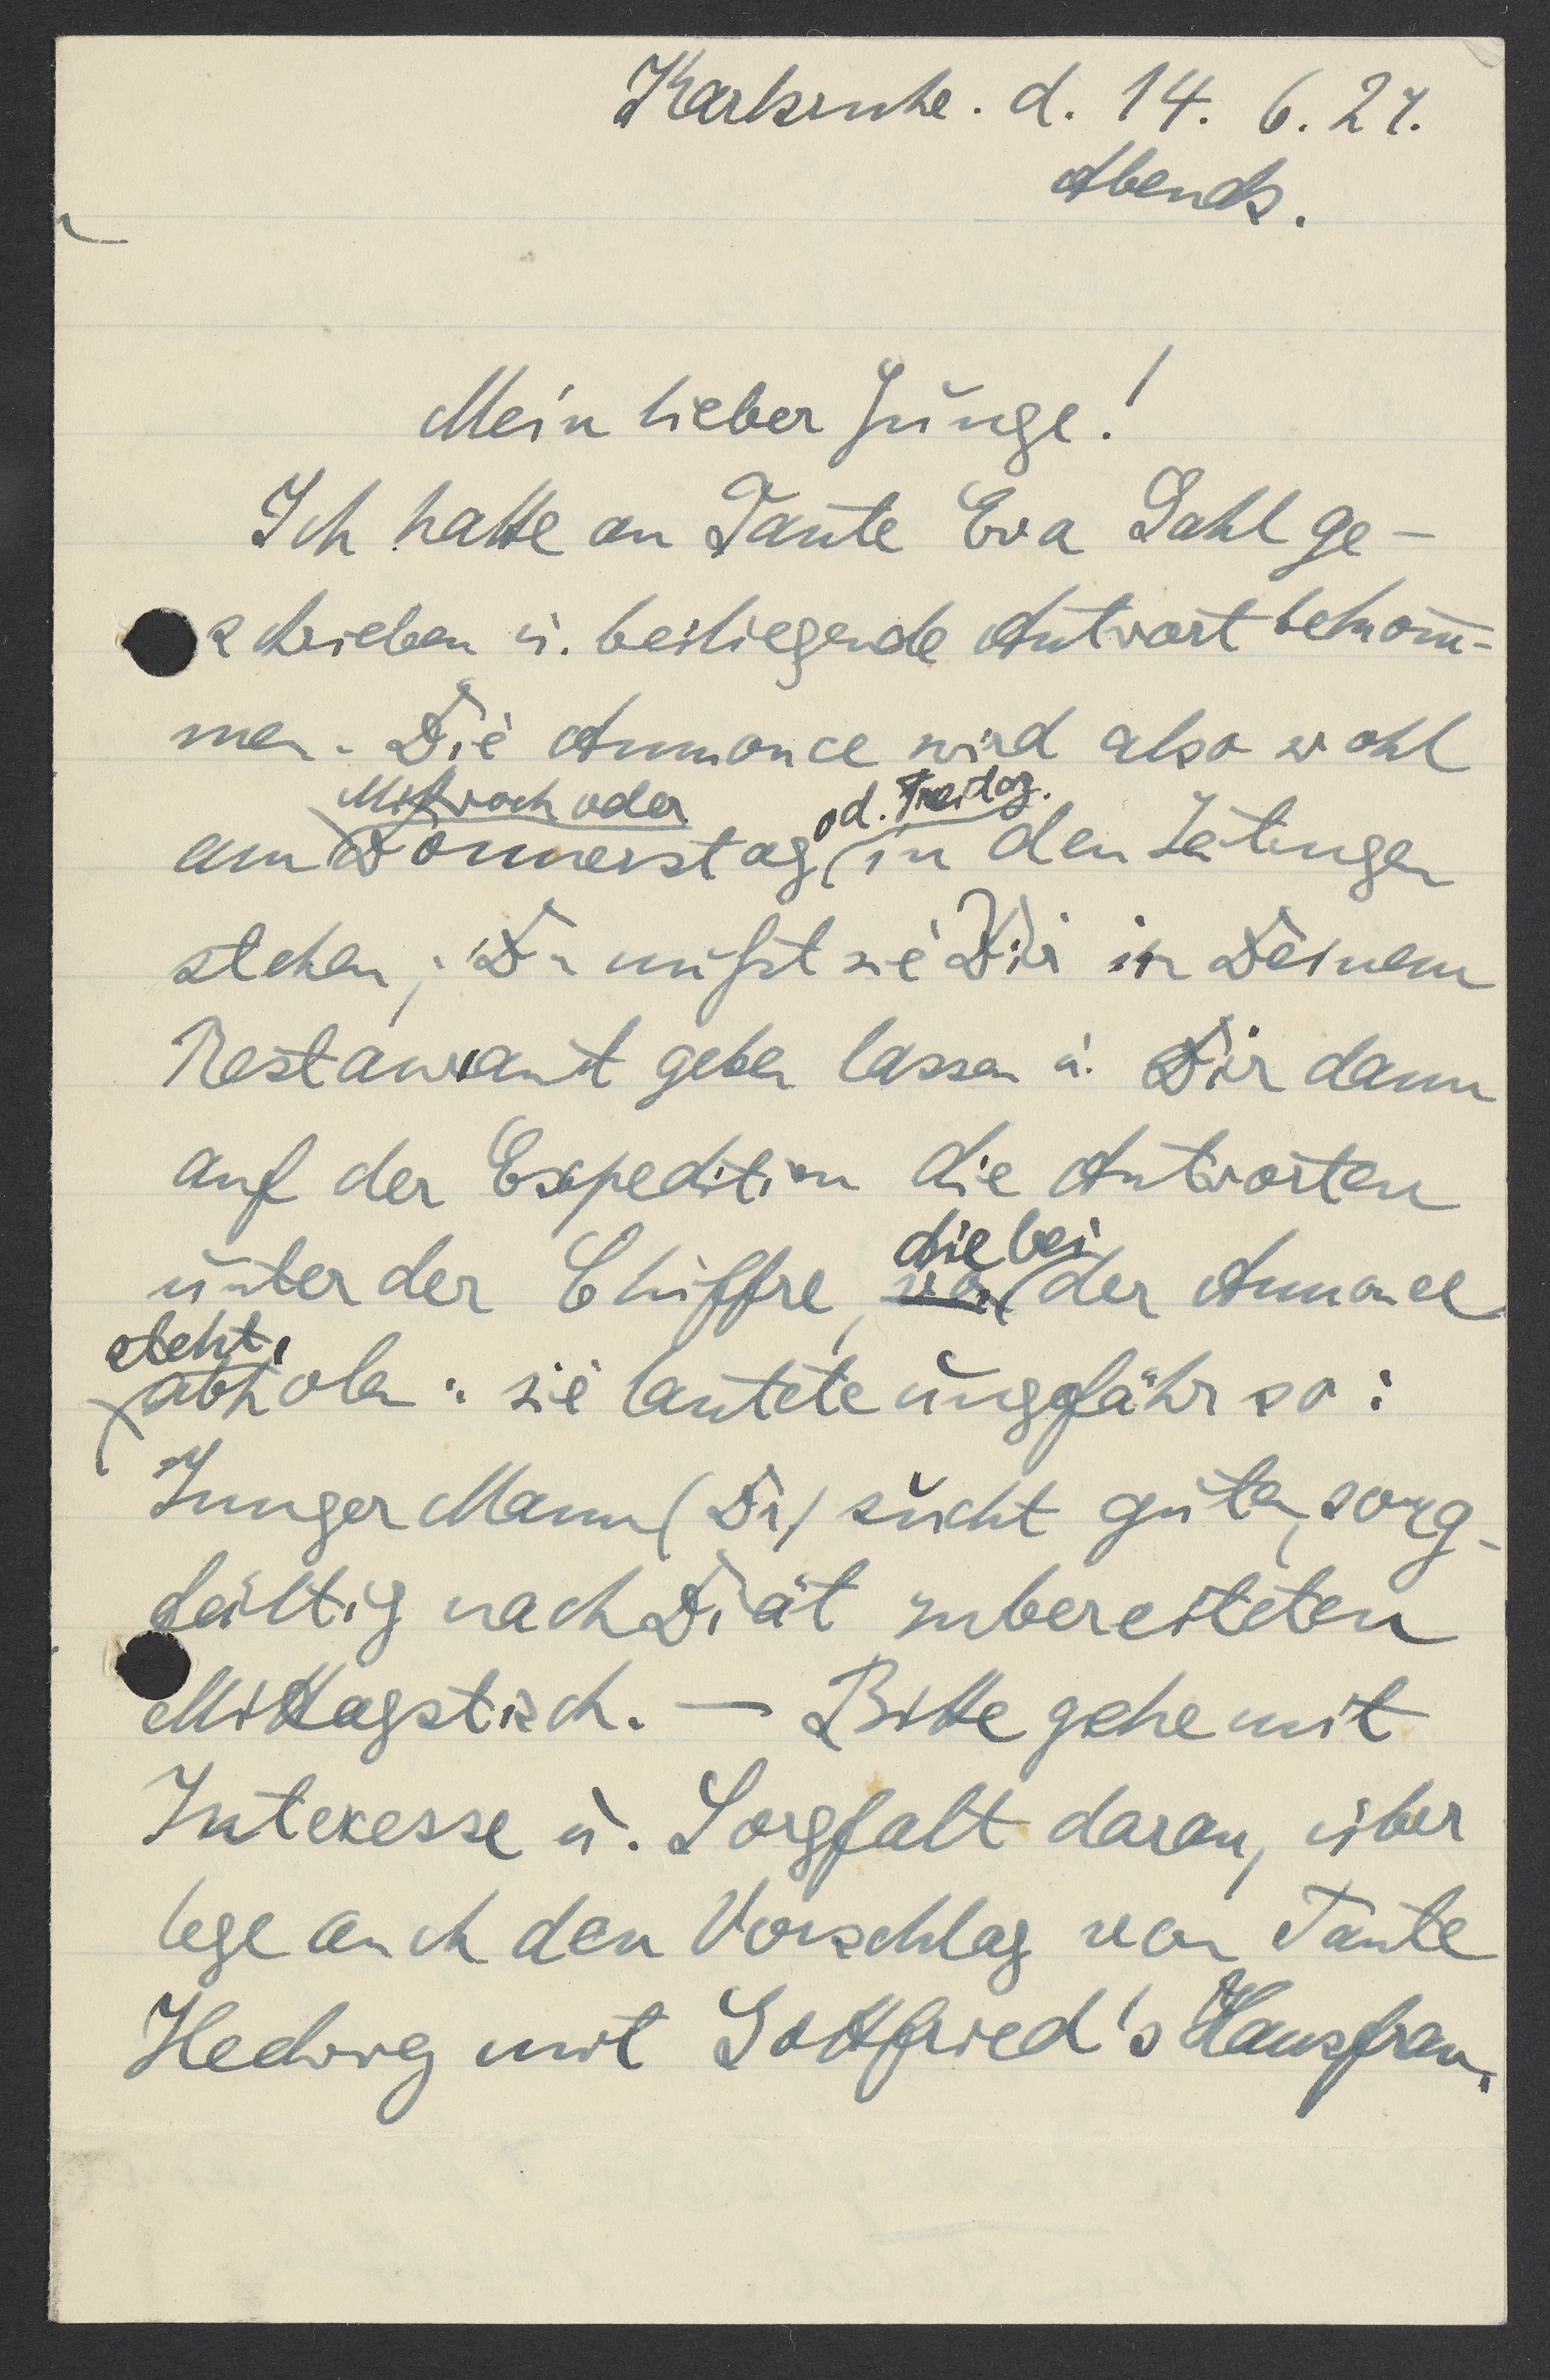 Karlsruhe. d. 14. 6. 27.
Abends.
Mein lieber Junge!
Ich hatte an Tante Eva Dahl ge-
schrieben u. beiliegende Antwort bekom̄-
men. Die Annonce wird also wohl
Mittwoch oder od. Freitag.
am Donnerstag in den Zeitungen
stehen; Du mußt sie Dir in Deinem
Restaurant geben lassen u. Dir dann
auf der Expedition die Antworten
die bei
unter der Chiffre, von der Annonce
steht,
abholen: sie lautete ungefähr so:
Junger Mann (Dr) sucht guten, sorg-
fältig nach Diät zubereiteten
Mittagstisch. — Bitte gehe mit
Interesse u. Sorgfalt daran, über
lege auch den Vorschlag von Tante
Hedwig mit Gottfried's Hausfrau,